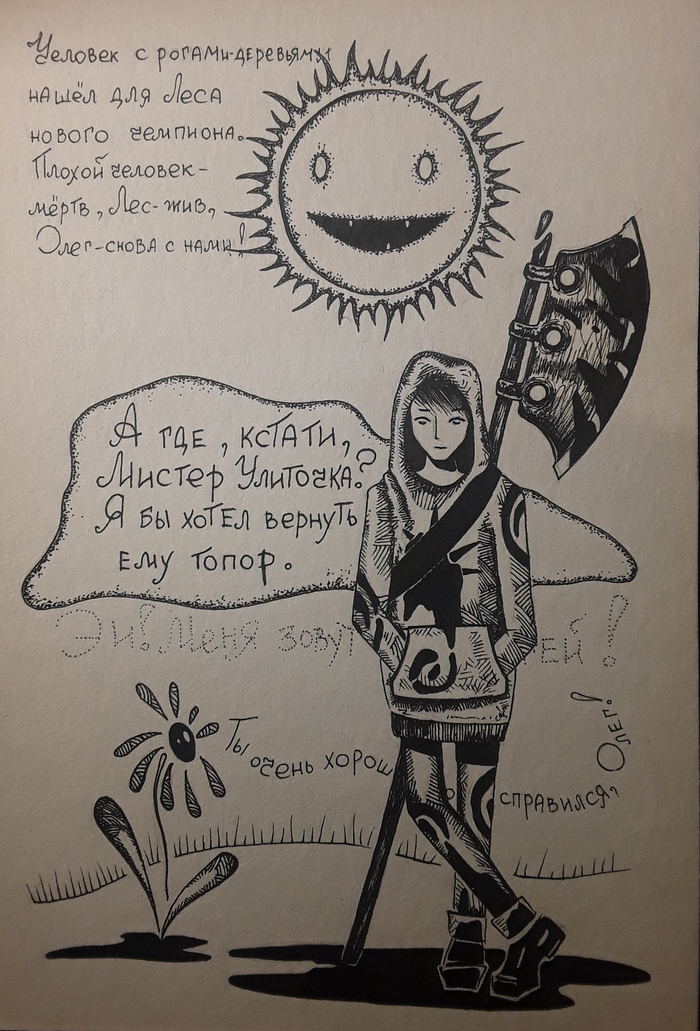 Человек с рогами-деревьями
нашёл для Леса
нового чемпиона.
Плохой человек-
мёртв, Лес-жив,
Олег-снова с нами!
А где, кстати,
Мистер Улиточка?
Я бы хотел вернуть
ему топор.
Эй! Меня зовут ей!
Ты очень хорошо справился, Олег!